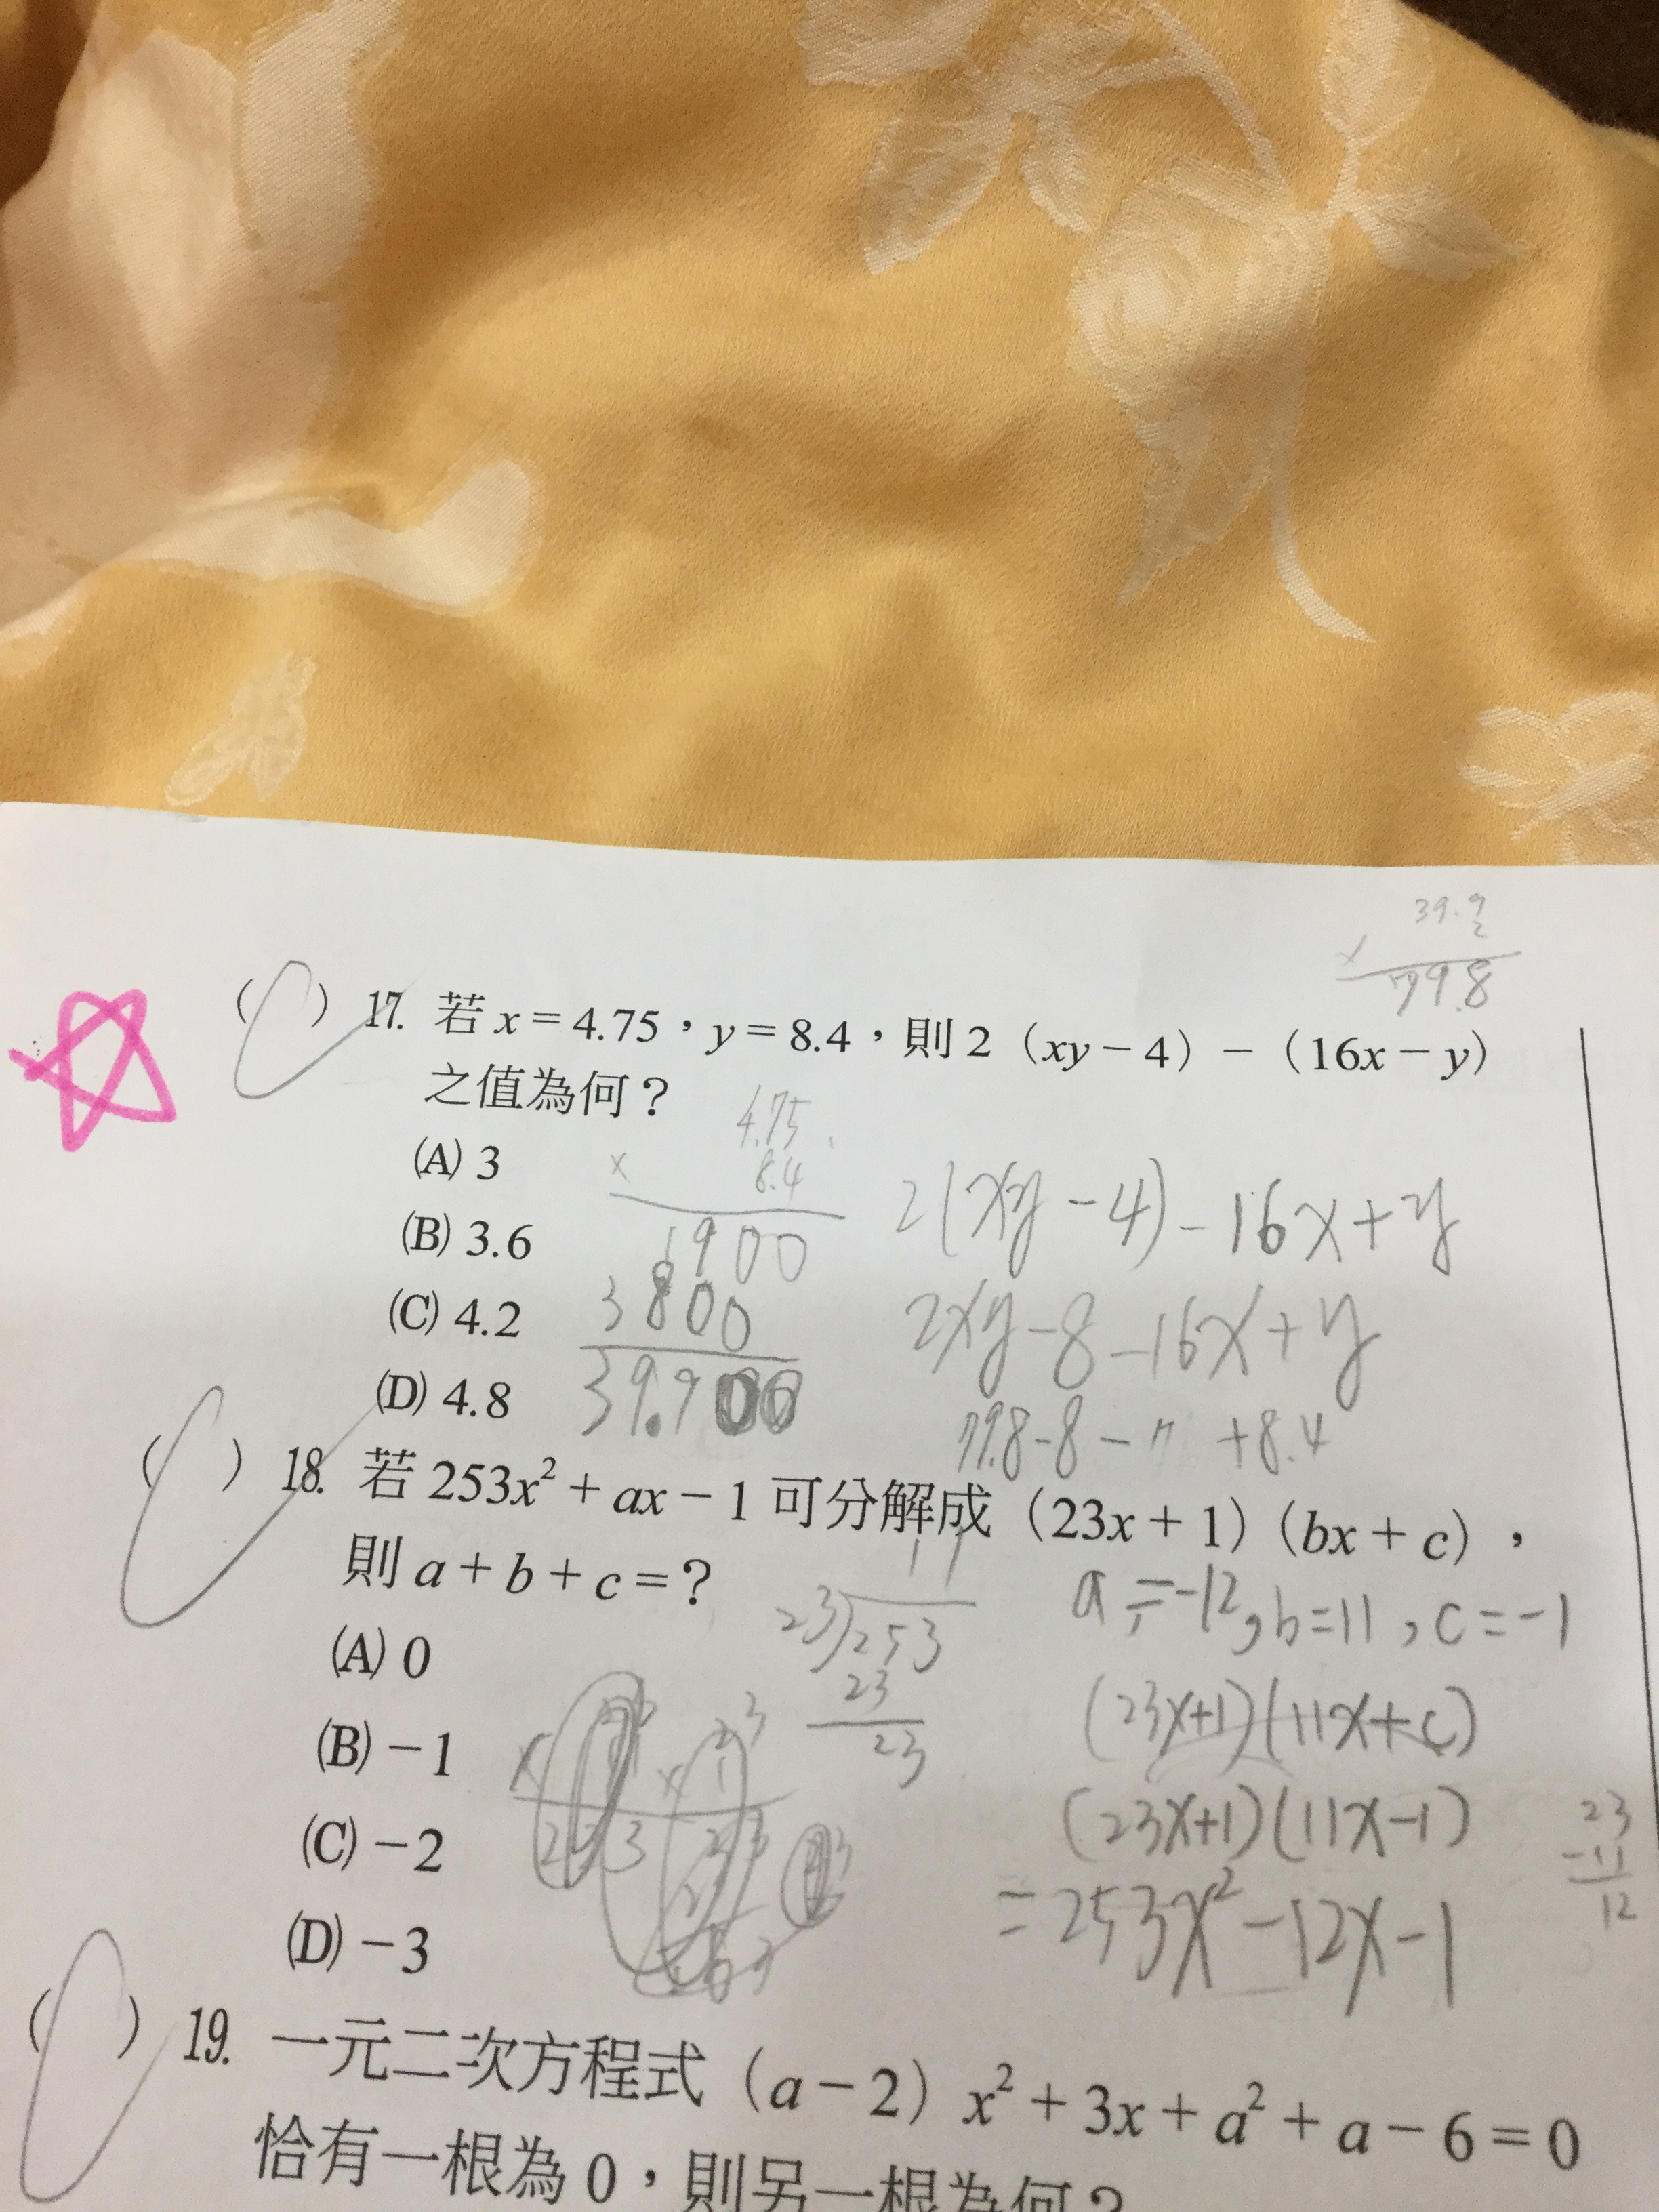 39.9
× 2
79.8
( ) 17. 若 x = 4.75,y = 8.4,則 2(xy − 4)−(16x − y)
之值為何?
(A) 3
(B) 3.6
(C) 4.2
(D) 4.8
4.75
× 8.4
1900
3800
39.900
2(xy − 4) − 16x + y
2xy − 8 − 16x + y
79.8 − 8 − + 8.4
( ) 18. 若 253x² + ax − 1 可分解成(23x + 1)(bx + c),
則 a + b + c = ?
(A) 0
(B) −1
(C) −2
(D) −3
11
23)253
23
23
a = −12, b = 11, c = −1
(23x+1)(11x+c)
(23x+1)(11x−1)
= 253x² − 12x − 1
23
−11
12
( ) 19. 一元二次方程式(a − 2)x² + 3x + a² + a − 6 = 0
恰有一根為 0,則另一根為何?